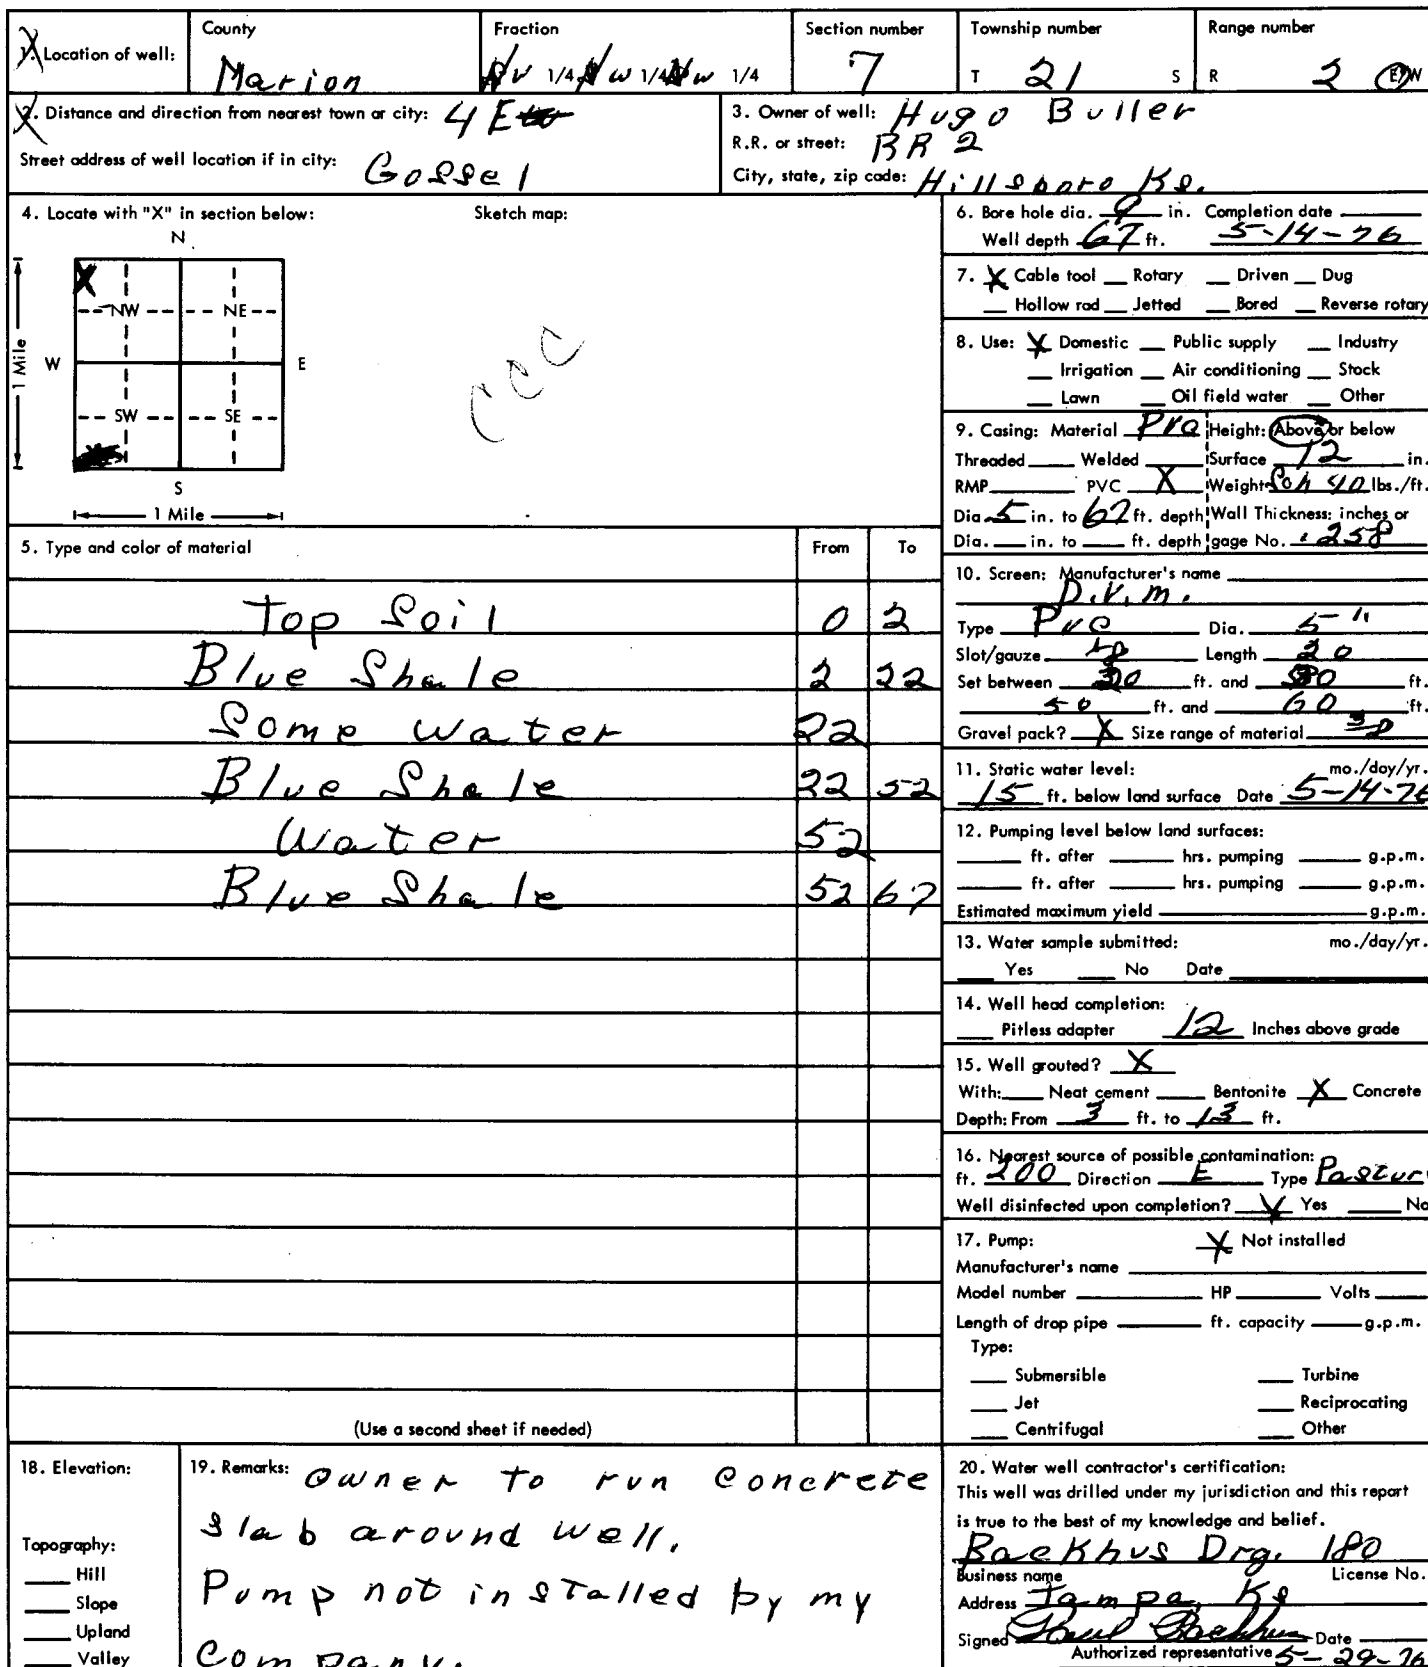 1. Location of well: County Marion Fraction NW 1/4 NW 1/4 NW 1/4 Section number 7 Township number T 21 S Range number R 2 E/W
2. Distance and direction from nearest town or city: 4 E
Street address of well location if in city: Gossel
3. Owner of well: Hugo Buller
R.R. or street: RR 2
City, state, zip code: Hillsboro Ks.
4. Locate with "X" in section below: Sketch map:
N
X
NW NE
W E
1 Mile
SW SE
S
1 Mile
CCC
5. Type and color of material From To
Top Soil 0 2
Blue Shale 2 22
Some water 22
Blue Shale 22 52
Water 52
Blue Shale 52 67
(Use a second sheet if needed)
6. Bore hole dia. 9 in. Completion date
Well depth 67 ft. 5-14-76
7. X Cable tool Rotary Driven Dug
Hollow rod Jetted Bored Reverse rotary
8. Use: X Domestic Public supply Industry
Irrigation Air conditioning Stock
Lawn Oil field water Other
9. Casing: Material PVC Height: Above or below
Threaded Welded Surface 12 in.
RMP PVC X Weight Sch 40 lbs./ft.
Dia. 5 in. to 67 ft. depth Wall Thickness: inches or
Dia. in. to ft. depth gage No. .258
10. Screen: Manufacturer's name
D.V.M.
Type PVC Dia. 5"
Slot/gauze Length 20
Set between ft. and ft.
50 ft. and 60 ft.
Gravel pack? X Size range of material
11. Static water level: mo./day/yr.
15 ft. below land surface Date 5-14-76
12. Pumping level below land surfaces:
ft. after hrs. pumping g.p.m.
ft. after hrs. pumping g.p.m.
Estimated maximum yield g.p.m.
13. Water sample submitted: mo./day/yr.
Yes No Date
14. Well head completion:
Pitless adapter 12 Inches above grade
15. Well grouted? X
With: Neat cement Bentonite X Concrete
Depth: From 3 ft. to 13 ft.
16. Nearest source of possible contamination:
ft. 200 Direction E Type Pasture
Well disinfected upon completion? X Yes No
17. Pump: X Not installed
Manufacturer's name
Model number HP Volts
Length of drop pipe ft. capacity g.p.m.
Type:
Submersible Turbine
Jet Reciprocating
Centrifugal Other
18. Elevation:
Topography:
Hill
Slope
Upland
Valley
19. Remarks: Owner to run concrete
slab around well.
Pump not installed by my
company.
20. Water well contractor's certification:
This well was drilled under my jurisdiction and this report
is true to the best of my knowledge and belief.
Backhus Drg. 180
Business name License No.
Address Tampa, Ks
Signed Paul Backhus Date
Authorized representative 5-29-76